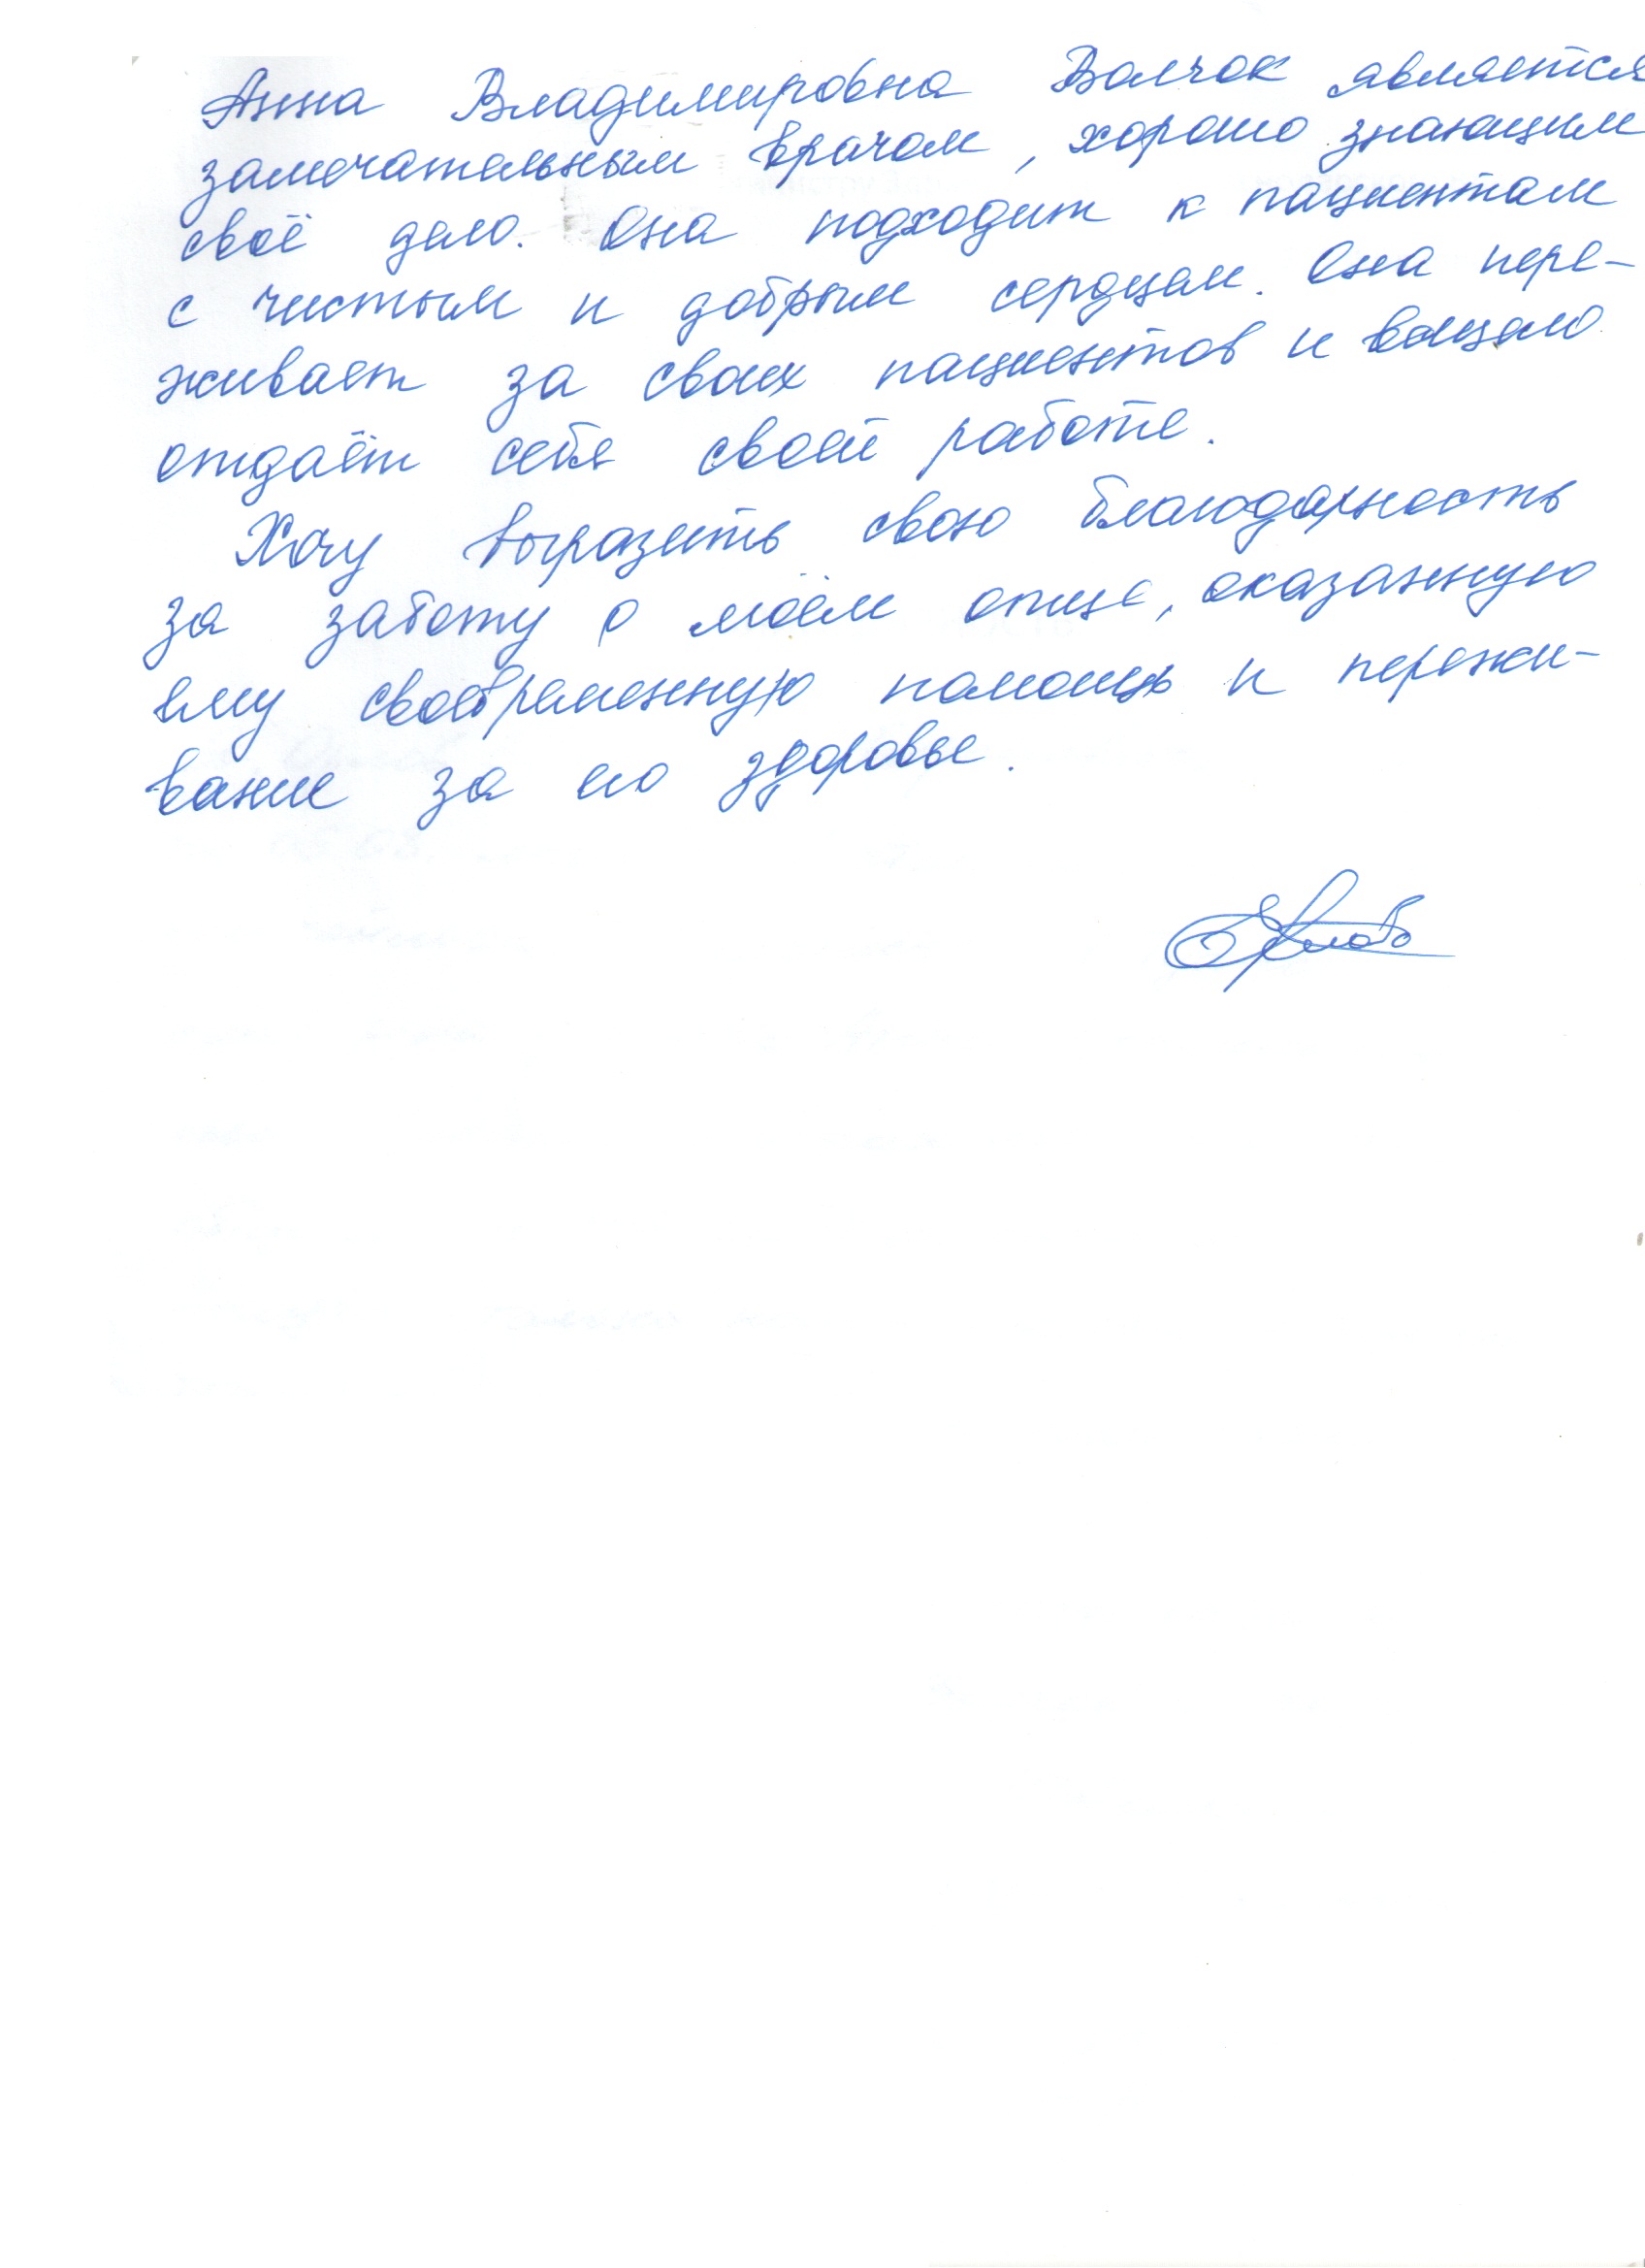 Анна Владимировна Волчок является
замечательным врачом, хорошо знающим
своё дело. Она подходит к пациентам
с чистым и добрым сердцем. Она пере-
живает за своих пациентов и
отдаёт себя своей работе.
Хочу выразить свою благодарность
за заботу о моём отце, оказанную
ему своевременную помощь и пережи-
вание за его здоровье.